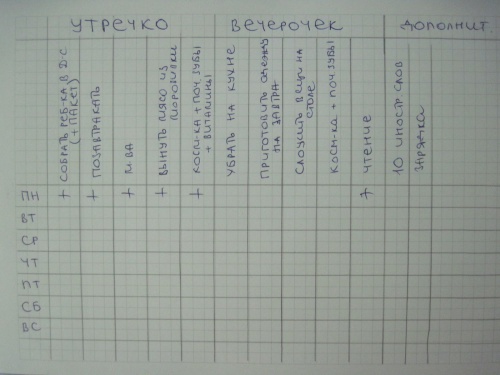 УТРЕЧКО
ВЕЧЕРОЧЕК
ДОПОЛНИТ.
+ СОБРАТЬ РЕБ-КА В Д-С
(+ ПАКЕТ)
+ ПОЗАВТРАКАТЬ
+
+ ВЫНУТЬ МЯСО ИЗ
МОРОЗИЛКИ
+ КОСМ-КА + ПОЧ. ЗУБЫ
+ ВИТАМИНЫ
УБРАТЬ НА КУХНЕ
ПРИГОТОВИТЬ ОДЕЖДУ
НА ЗАВТРА
СЛОЖИТЬ ВЕЩИ НА
СТОЛЕ
КОСМ-КА + ПОЧ. ЗУБЫ
+ ЧТЕНИЕ
10 ИНОСТР СЛОВ
ЗАРЯДКА
ПН
ВТ
СР
ЧТ
ПТ
СБ
ВС